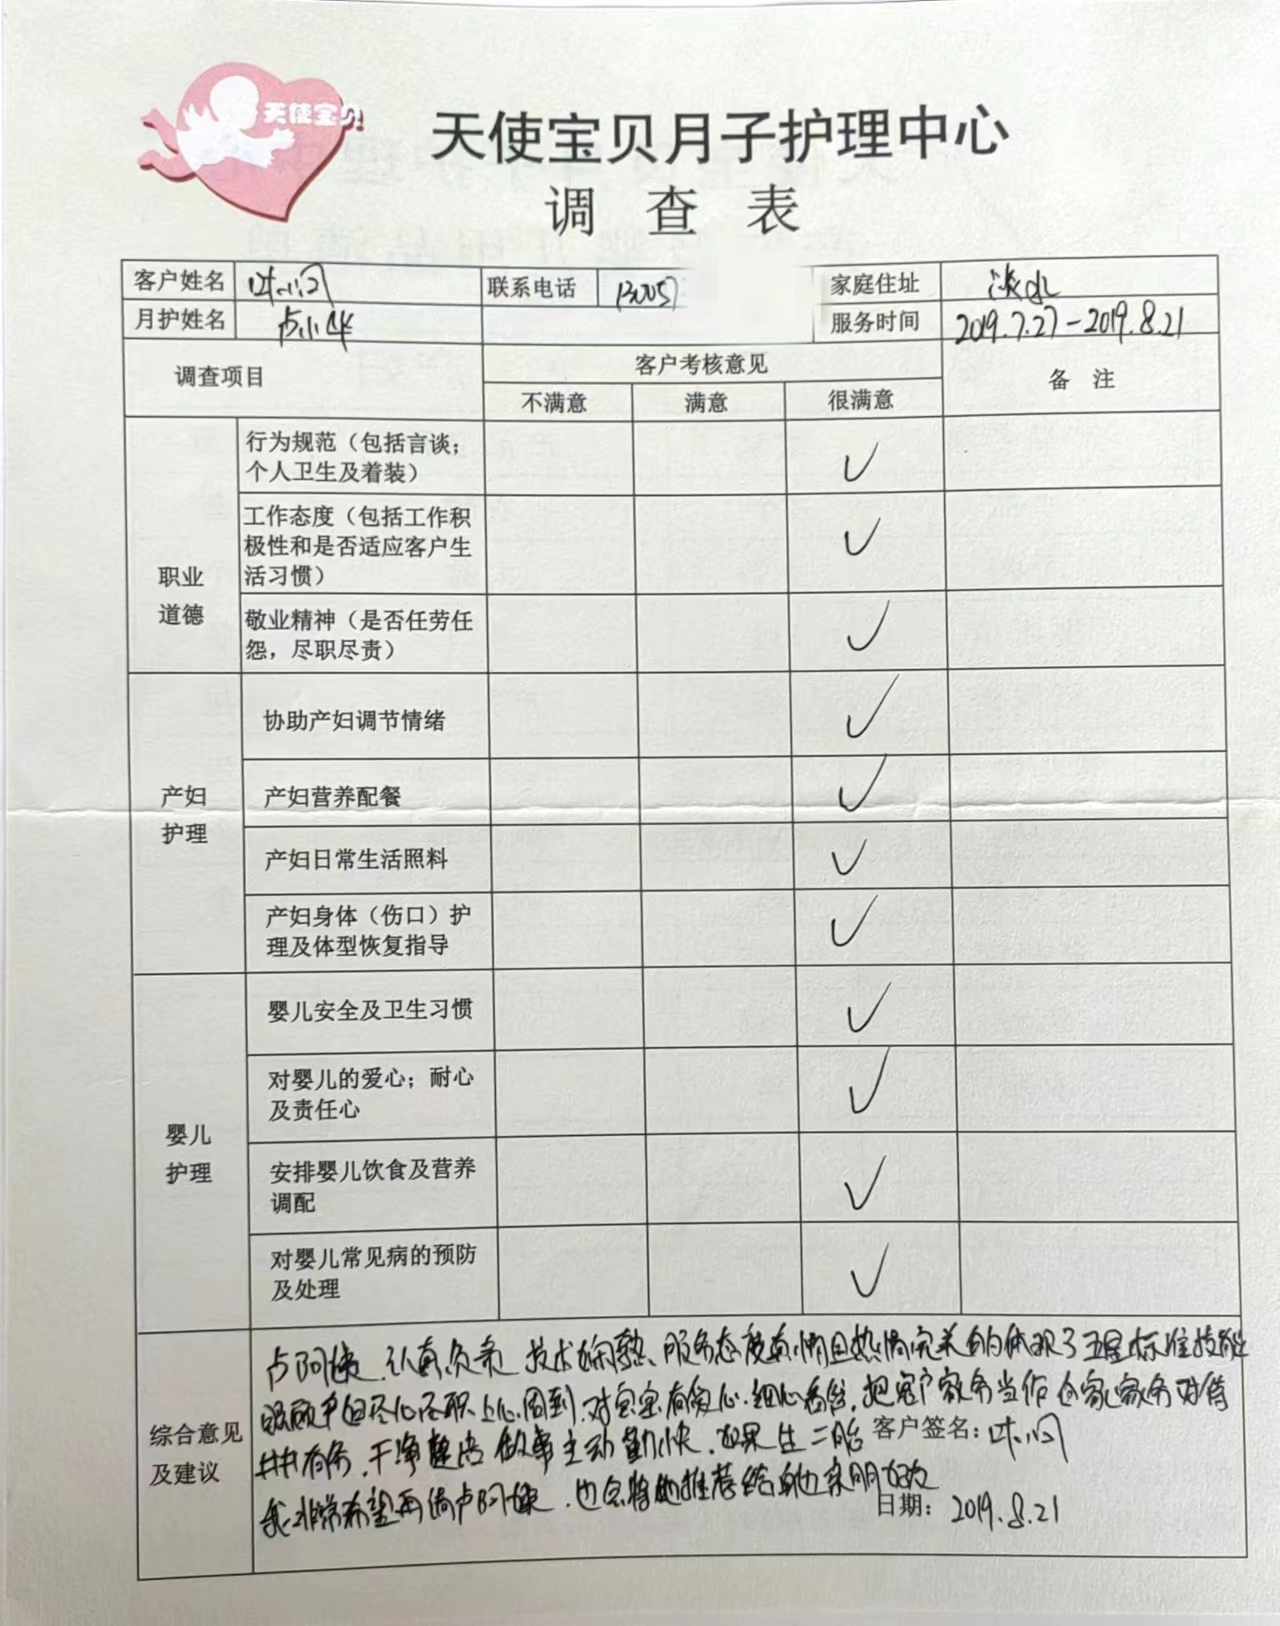 天使宝贝
天使宝贝月子护理中心
调 查 表
客户姓名 联系电话 家庭住址 淡水
月护姓名 卢小华 服务时间 2019.7.27-2019.8.21
调查项目 客户考核意见 备 注
不满意 满意 很满意
职业
道德
行为规范（包括言谈；
个人卫生及着装） ✓
工作态度（包括工作积
极性和是否适应客户生
活习惯） ✓
敬业精神（是否任劳任
怨，尽职尽责） ✓
产妇
护理
协助产妇调节情绪 ✓
产妇营养配餐 ✓
产妇日常生活照料 ✓
产妇身体（伤口）护
理及体型恢复指导 ✓
婴儿
护理
婴儿安全及卫生习惯 ✓
对婴儿的爱心；耐心
及责任心 ✓
安排婴儿饮食及营养
调配 ✓
对婴儿常见病的预防
及处理 ✓
综合意见
及建议
卢阿姨 认真负责 技术娴熟、服务态度真情且热情完美的体现了五星标准技能
照顾产妇尽心尽职上心周到，对宝宝有爱心，细心看护，把客户家务当作自家家务对待
井井有条，干净整洁 做事主动勤快，如果生二胎
我非常希望再请卢阿姨，也会将她推荐给身边亲朋好友
客户签名：
日期：2019.8.21